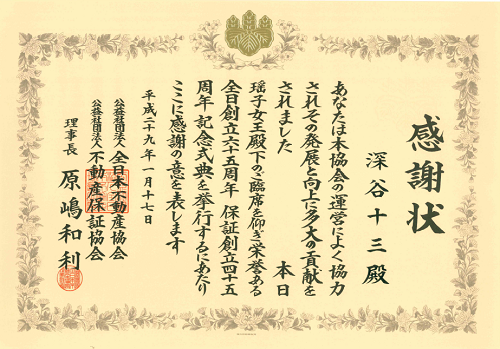 感謝状
深谷十三殿
あなたは本協会の運営によく協力
されその発展と向上に多大の貢献を
されました　本日
瑶子女王殿下のご臨席を仰ぎ栄誉ある
全日創立六十五周年 保証創立四十五
周年 記念式典を挙行するにあたり
ここに感謝の意を表します
平成二十九年一月十七日
公益社団法人 全日本不動産協会
公益社団法人 不動産保証協会
理事長 原嶋和利